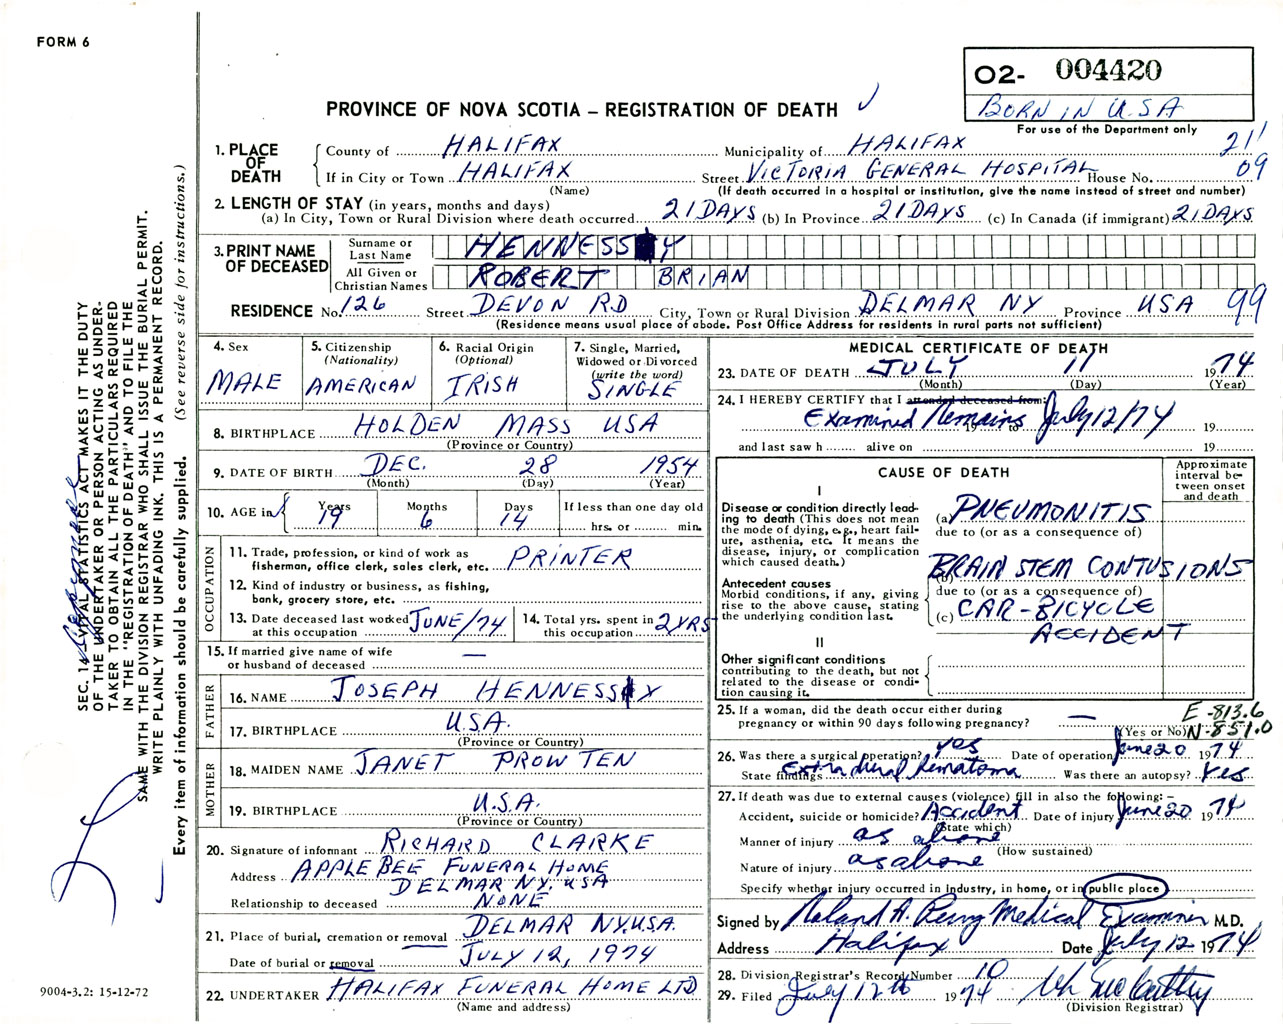 FORM 6
O2- 004420
BORN IN U.S.A
For use of the Department only
PROVINCE OF NOVA SCOTIA – REGISTRATION OF DEATH
1. PLACE OF DEATH
County of HALIFAX Municipality of HALIFAX 21
If in City or Town HALIFAX Street VICTORIA GENERAL HOSPITAL House No. 09
(Name) (If death occurred in a hospital or institution, give the name instead of street and number)
2. LENGTH OF STAY (in years, months and days)
(a) In City, Town or Rural Division where death occurred 21 DAYS (b) In Province 21 DAYS (c) In Canada (if immigrant) 21 DAYS
3. PRINT NAME OF DECEASED
Surname or Last Name HENNESSY
All Given or Christian Names ROBERT BRIAN
RESIDENCE No. 126 Street DEVON RD City, Town or Rural Division DELMAR NY Province USA 99
(Residence means usual place of abode. Post Office Address for residents in rural parts not sufficient)
4. Sex MALE
5. Citizenship (Nationality) AMERICAN
6. Racial Origin (Optional) IRISH
7. Single, Married, Widowed or Divorced (write the word) SINGLE
8. BIRTHPLACE HOLDEN MASS USA
(Province or Country)
9. DATE OF BIRTH DEC. 28 1954
(Month) (Day) (Year)
10. AGE in Years 19 Months 6 Days 14 If less than one day old
hrs. or min.
OCCUPATION
11. Trade, profession, or kind of work as fisherman, office clerk, sales clerk, etc. PRINTER
12. Kind of industry or business, as fishing, bank, grocery store, etc.
13. Date deceased last worked at this occupation JUNE/74
14. Total yrs. spent in this occupation 2 YRS
15. If married give name of wife or husband of deceased —
FATHER
16. NAME JOSEPH HENNESSY
17. BIRTHPLACE U.S.A.
(Province or Country)
MOTHER
18. MAIDEN NAME JANET PROWTEN
19. BIRTHPLACE U.S.A.
(Province or Country)
20. Signature of informant RICHARD CLARKE
Address APPLEBEE FUNERAL HOME
DELMAR NY. USA
Relationship to deceased NONE
21. Place of burial, cremation or removal DELMAR N.Y.U.S.A.
Date of burial or removal JULY 12, 1974
22. UNDERTAKER HALIFAX FUNERAL HOME LTD
(Name and address)
MEDICAL CERTIFICATE OF DEATH
23. DATE OF DEATH JULY 11 1974
(Month) (Day) (Year)
24. I HEREBY CERTIFY that I attended deceased from:
Examined Remains 19 to July 12/74 19
and last saw h alive on 19
CAUSE OF DEATH
Approximate interval between onset and death
I
Disease or condition directly leading to death (This does not mean the mode of dying, e.g., heart failure, asthenia, etc. It means the disease, injury, or complication which caused death.)
(a) PNEUMONITIS
due to (or as a consequence of)
Antecedent causes
Morbid conditions, if any, giving rise to the above cause, stating the underlying condition last.
(b) BRAIN STEM CONTUSIONS
due to (or as a consequence of)
(c) CAR-BICYCLE
ACCIDENT
II
Other significant conditions contributing to the death, but not related to the disease or condition causing it.
25. If a woman, did the death occur either during pregnancy or within 90 days following pregnancy? —
(Yes or No)
E-813.6
N-851.0
26. Was there a surgical operation? Yes Date of operation June 20 1974
State findings Extradural Hematoma Was there an autopsy? Yes
27. If death was due to external causes (violence) fill in also the following: –
Accident, suicide or homicide? Accident Date of injury June 20 1974
(State which)
Manner of injury as above
(How sustained)
Nature of injury as above
Specify whether injury occurred in industry, in home, or in public place
Signed by Roland A. Perry Medical Examiner M.D.
Address Halifax Date July 12 1974
28. Division Registrar's Record Number 10
29. Filed July 12th 1974
(Division Registrar)
SEC. 14 – VITAL STATISTICS ACT MAKES IT THE DUTY
OF THE UNDERTAKER OR PERSON ACTING AS UNDER-
TAKER TO OBTAIN ALL THE PARTICULARS REQUIRED
IN THE "REGISTRATION OF DEATH" AND TO FILE THE
SAME WITH THE DIVISION REGISTRAR WHO SHALL ISSUE THE BURIAL PERMIT.
WRITE PLAINLY WITH UNFADING INK. THIS IS A PERMANENT RECORD.
Every item of information should be carefully supplied. (See reverse side for instructions.)
9004-3.2: 15-12-72